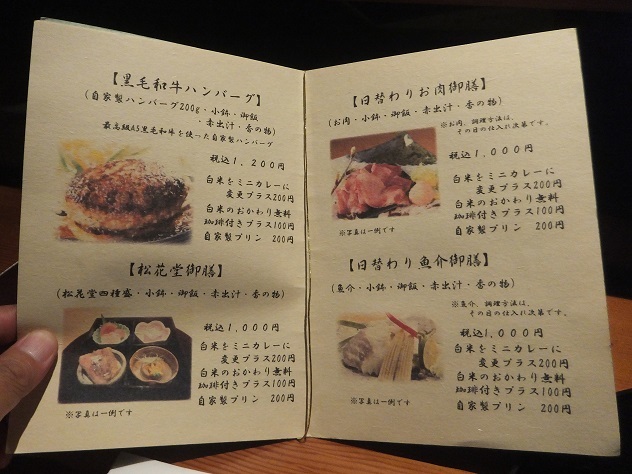 【黒毛和牛ハンバーグ】
(自家製ハンバーグ200g・小鉢・御飯
・赤出汁・香の物)
最高級A5黒毛和牛を使った自家製ハンバーグ
税込1,200円
白米をミニカレーに
変更プラス200円
白米のおかわり無料
珈琲付きプラス100円
自家製プリン 200円
【松花堂御膳】
(松花堂四種盛・小鉢・御飯・赤出汁・香の物)
税込1,000円
白米をミニカレーに
変更プラス200円
白米のおかわり無料
珈琲付きプラス100円
自家製プリン 200円
※写真は一例です
【日替わりお肉御膳】
(お肉・小鉢・御飯・赤出汁・香の物)
※お肉、調理方法は、
その日の仕入れ次第です。
税込1,000円
白米をミニカレーに
変更プラス200円
白米のおかわり無料
珈琲付きプラス100円
自家製プリン 200円
※写真は一例です
【日替わり魚介御膳】
(魚介・小鉢・御飯・赤出汁・香の物)
※魚介、調理方法は、
その日の仕入れ次第です。
税込1,000円
白米をミニカレーに
変更プラス200円
白米のおかわり無料
珈琲付きプラス100円
自家製プリン 200円
※写真は一例です